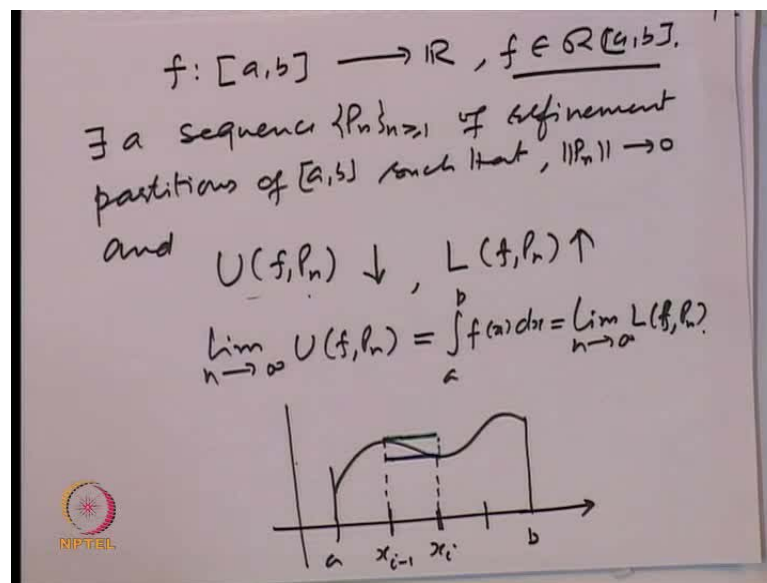 f: [a,b] ⟶ ℝ, f ∈ R[a,b].
∃ a sequence {Pₙ}ₙ≥₁ of refinement
partitions of [a,b] such that, ||Pₙ|| → 0
and
U(f,Pₙ) ↓, L(f,Pₙ) ↑
lim n→∞ U(f,Pₙ) = ∫ₐᵇ f(x)dx = lim n→∞ L(f,Pₙ).
a xᵢ₋₁ xᵢ b
NPTEL